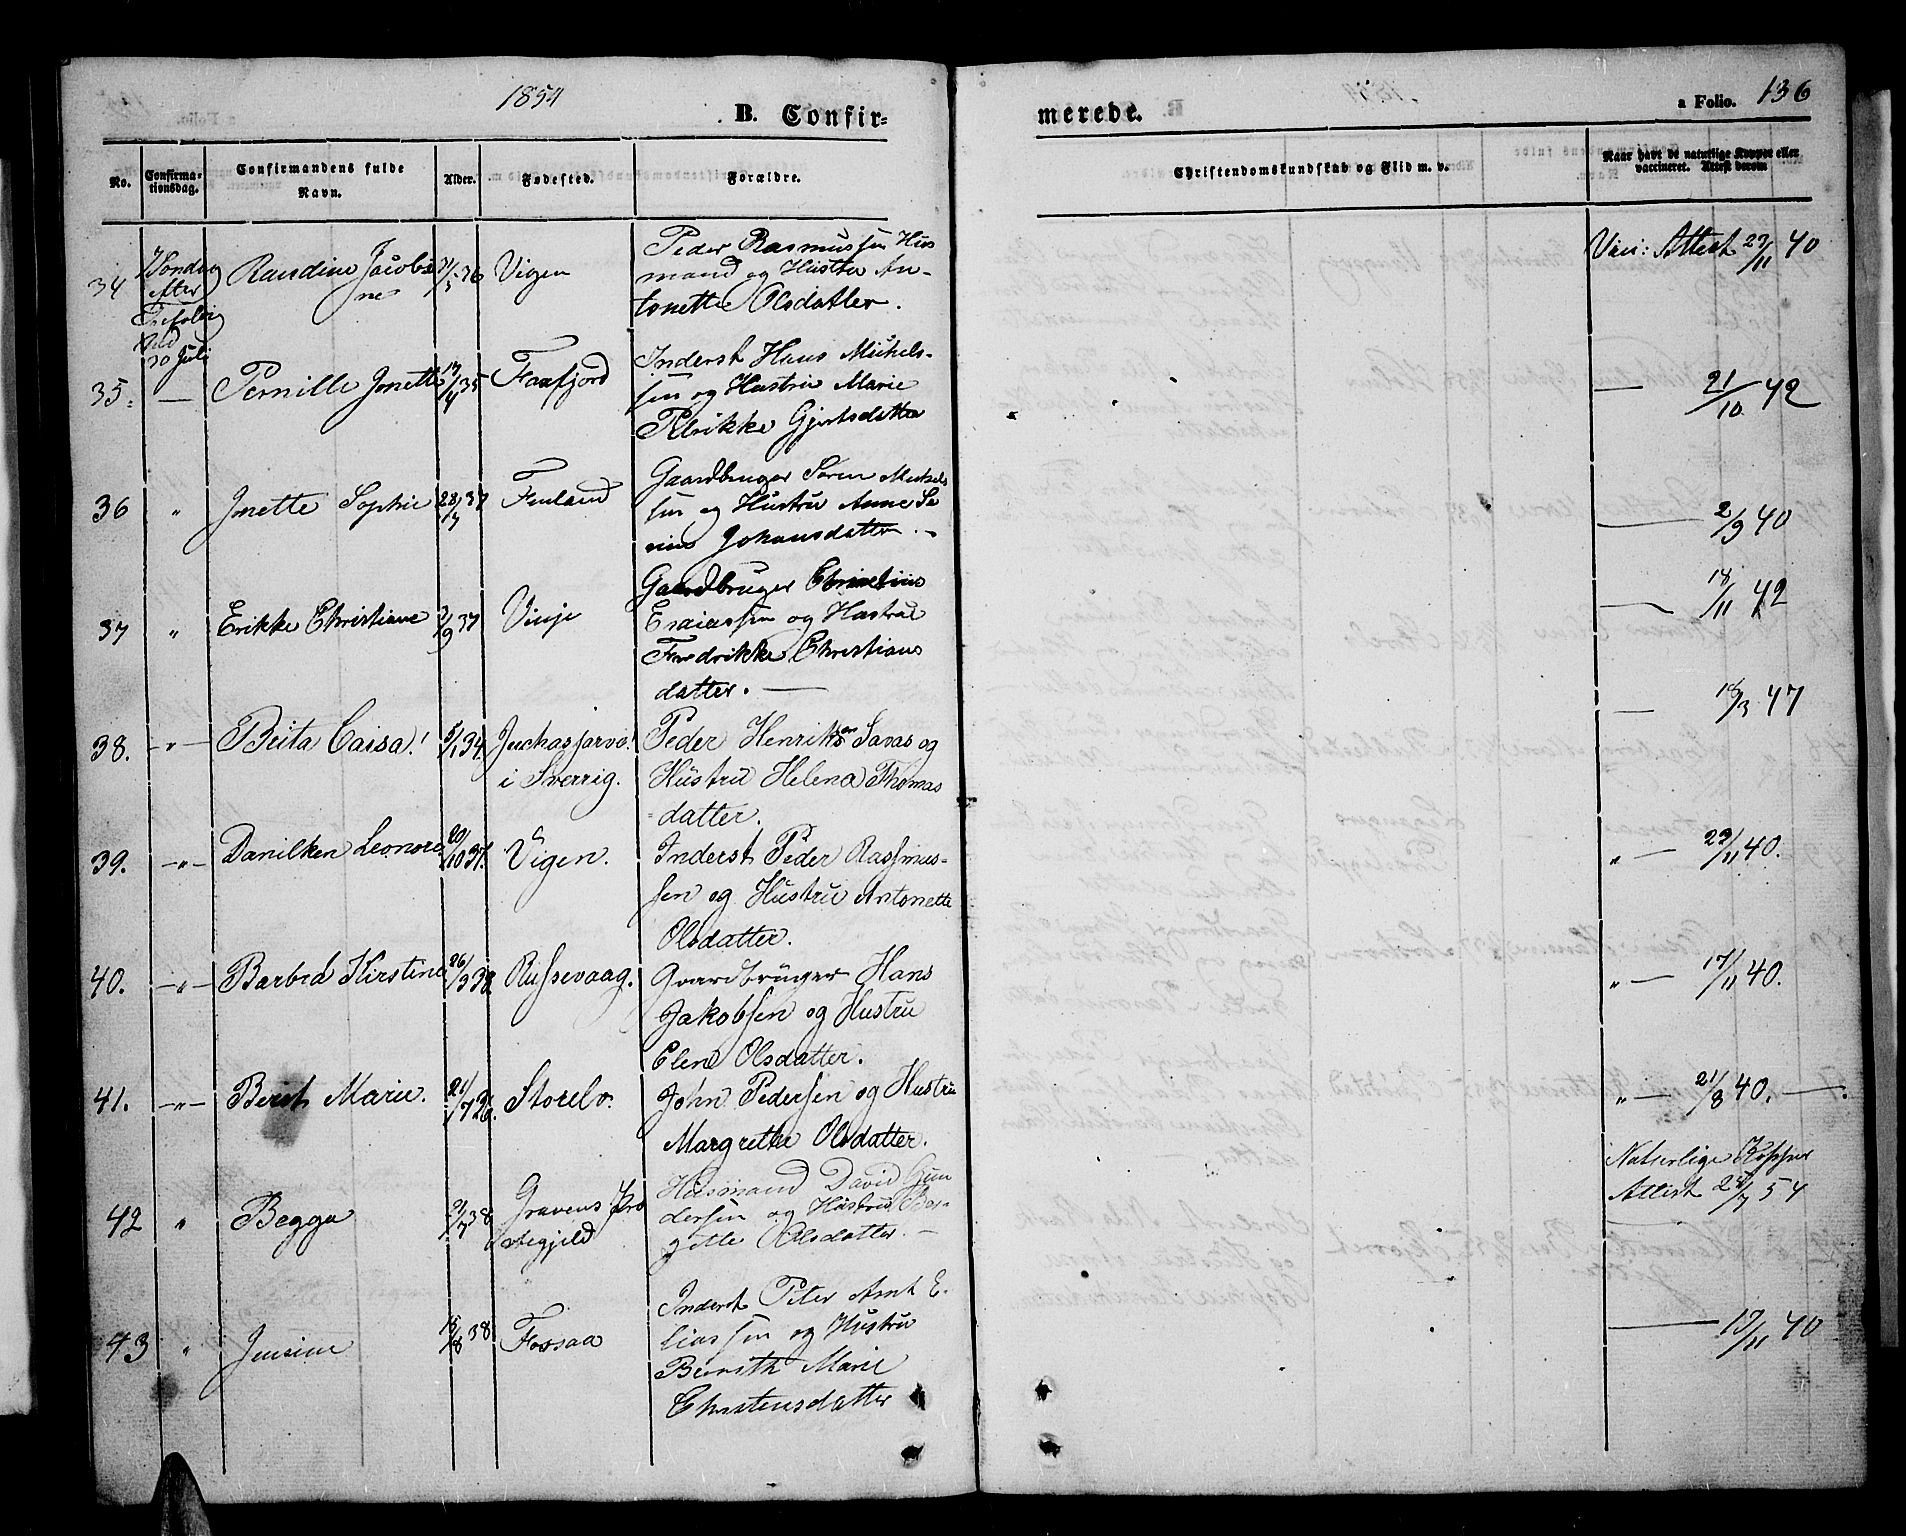 1854
B. Confir=
merede.
a Folio. 136
No.
Confirma-
tionsdag.
Confirmandens fulde
Navn.
Alder.
Fødested.
Forældre.
Christendomskundskab og Flid m. v.
Naar havt de naturlige Kopper eller
vaccineret. Attest derom
34
Søndag
efter
Trefoldig
hed
30 Juli
Randine Jacobi
ne
Vigen
Peder Rasmussen Hus
mand og Hustru An-
tonette Olsdatter.
Vacc: Attest 23/11 40
35. —
Pernille Jonette 14/4 35
Faxfjord
Inderst Hans Michels-
sen og Hustru Marie
Ulrikke Gjertsdatter
— 21/10 42
36 "
Jonette Sophie 28/7 37
Finland
Gaardbruger Søren Michels
sen og Hustru Anne Se
rine Johansdatter.
— 2/9 40
37 "
Erikke Christiane 3/9 37
Vinje
Gaardbruger Christian
Esaiassen og Hustru
Fredrikke Christians
datter. —
— 18/11 42
38. —"—
Beita Caisa! 5/1 34.
Juckasjarvi!
i Sverrig.
Peder Henriksen Savas og
Hustru Helena Thomas
datter.
— 18/3 47
39. —"—
Danilken Leonore 20/10 37.
Vigen.
Inderst Peder Rassmus-
sen og Hustru Antonette
Olsdatter.
" — 23/11 40.
40. —"—
Barbed Kirstine 26/3 38.
Russevaag.
Gaardbruger Hans
Jakobsen og Hustru
Elen Olsdatter.
" — 17/11 40.
41. —"—
Berit Marie.
Storelv.
John Pedersen og Hustru
Margrethe Olsdatter.
" — 21/8 40. —.
42 "
Begga
Gravens Præ
stegjeld
Husmand David Gun
dersen og Hustru Bir-
gitte Olsdatter. —
Naturlige Kopper
Attest 24/7 54
43 "
Jensine 15/8 38
Fossaa
Inderst Peter Arnt E-
liassen og Hustru
Bereth Marie
Christensdatter
— 17/11 40